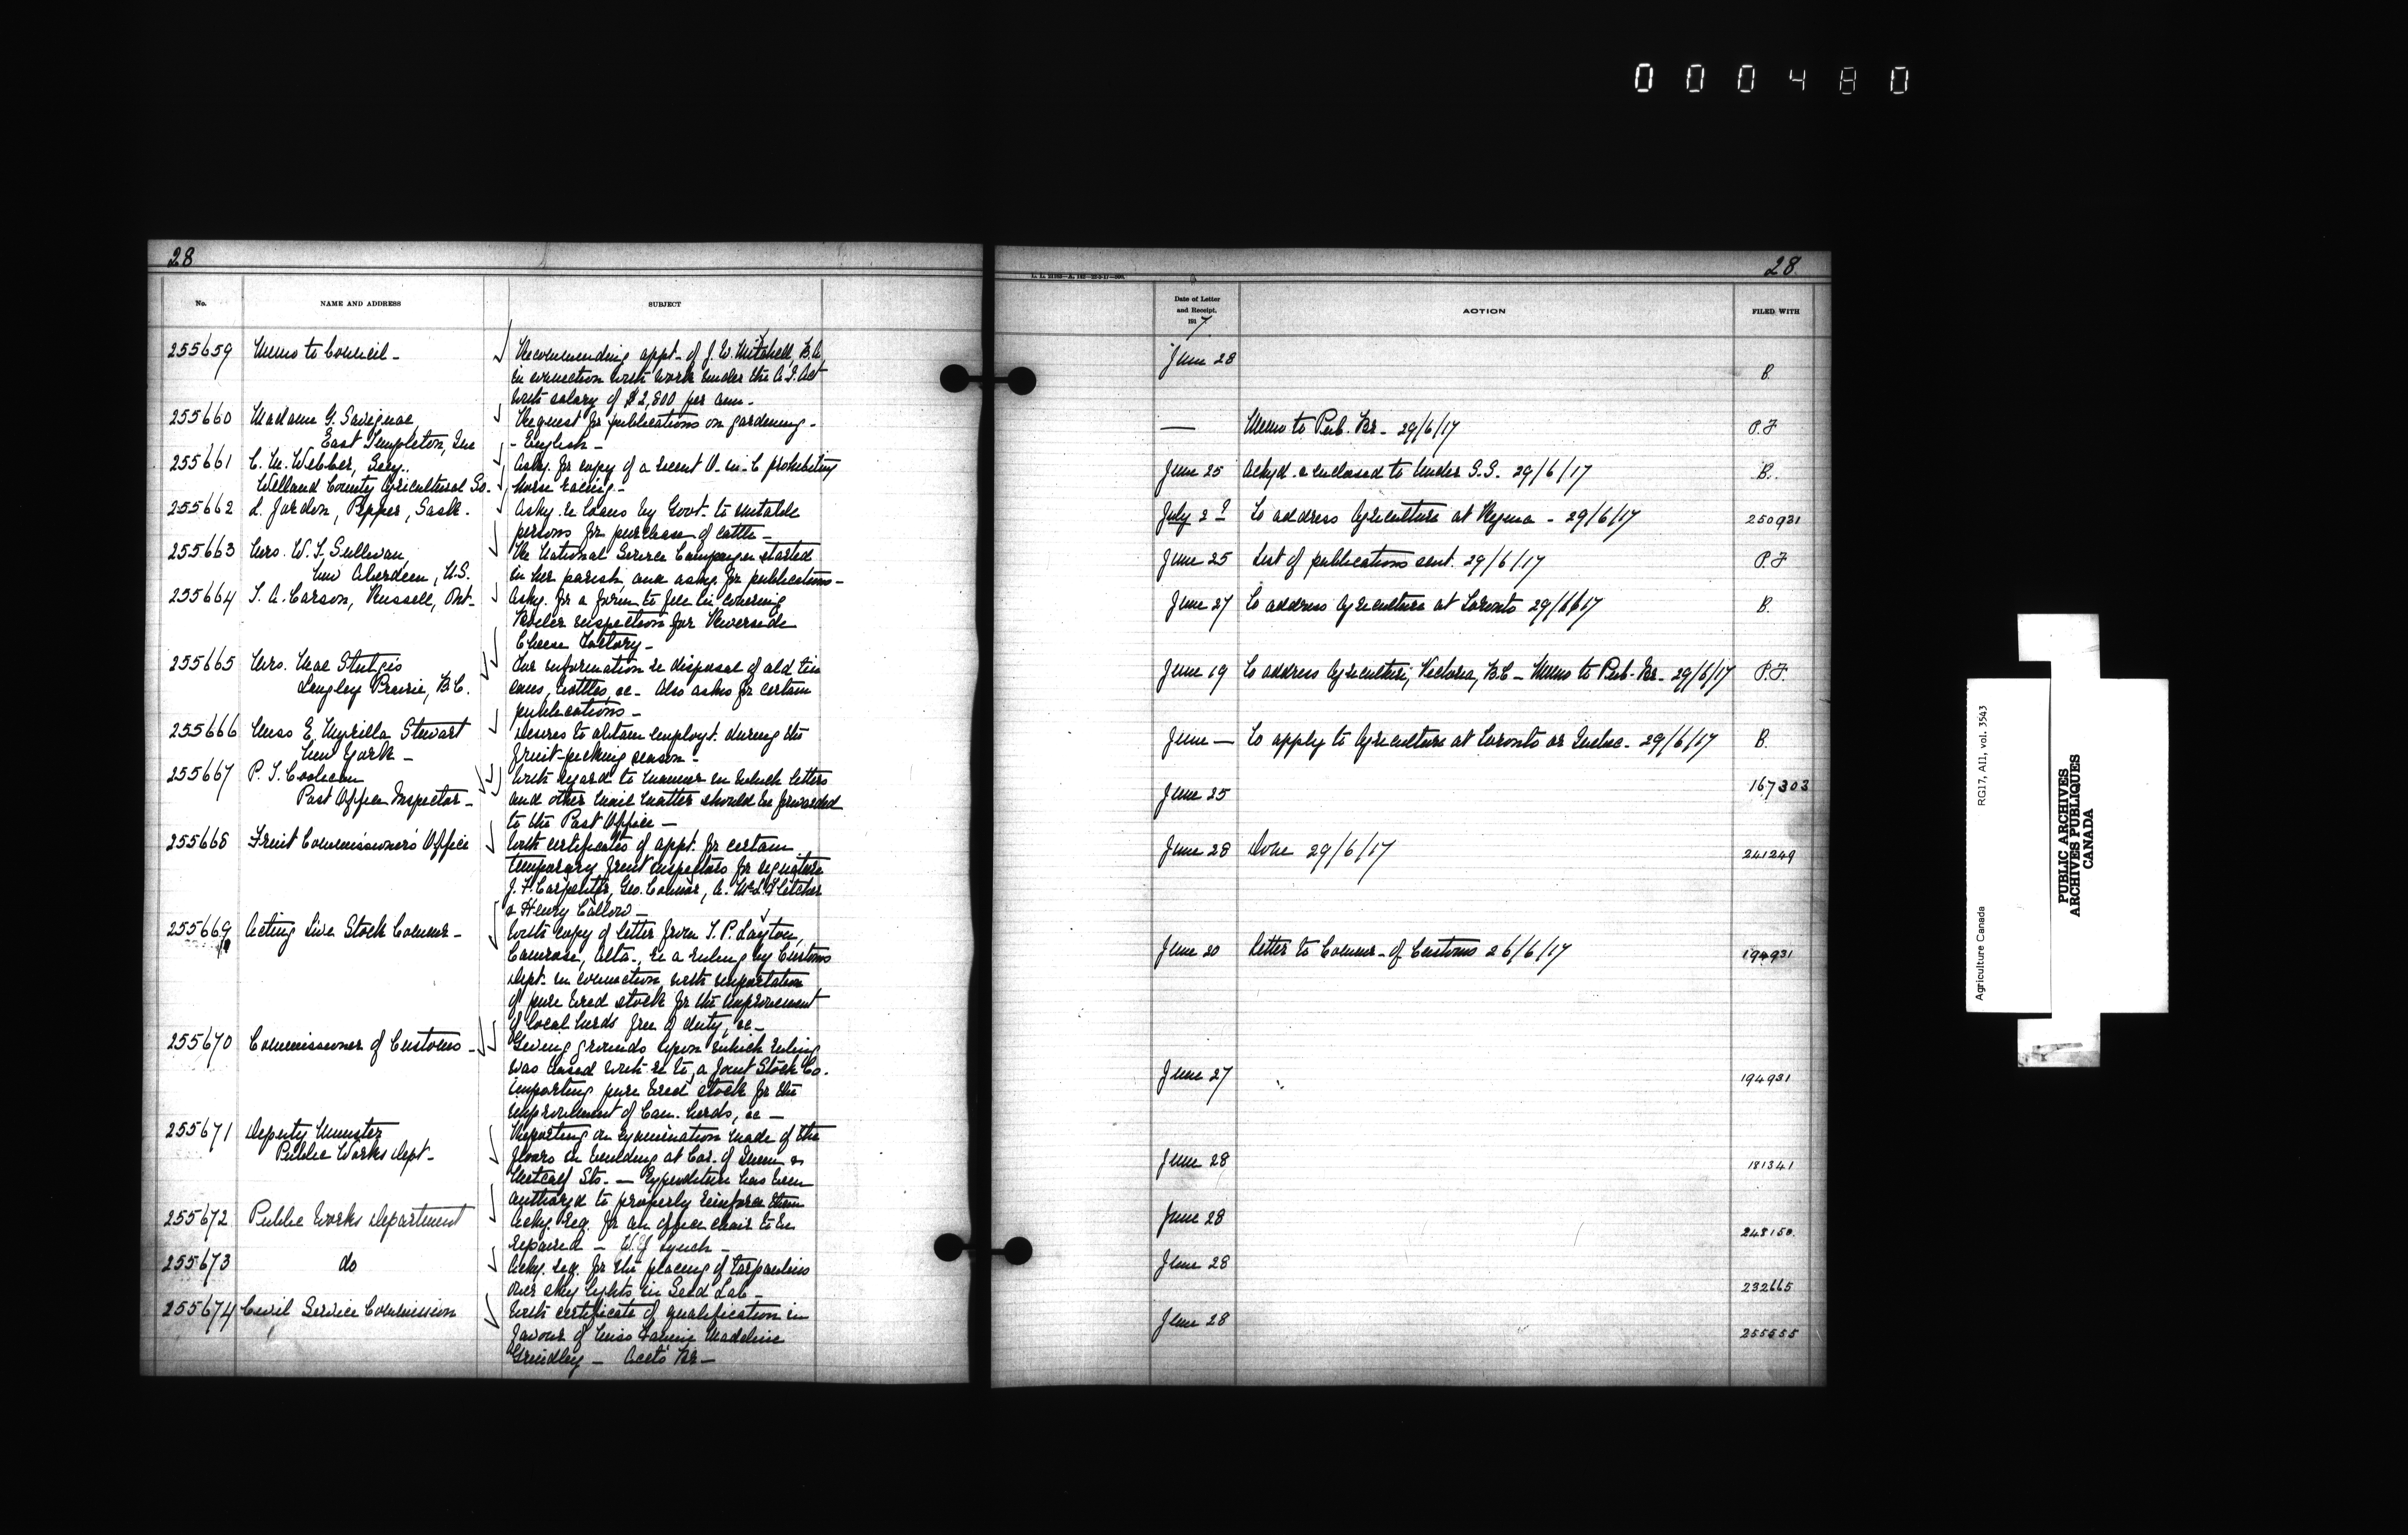 000480
28
No.
NAME AND ADDRESS
SUBJECT
255659 Memo to Council - Recommending appt. of J. W. Mitchell, B.A.
in connection with work under the A. I. Act
with salary of $2,800 per ann.
255660 Madam G. Savignac, Request for publications on gardening -
East Templeton, Que - English -
255661 C. M. Webber, Secy. Askg. for copy of a recent O-in-C prohibiting
Welland County Agricultural So. horse racing -
255662 L. Jordon, Pepper, Sask. Askg. re loans by Govt. to suitable
persons for purchase of cattle -
255663 Mrs. W. J. Sullivan, Re National Service Campaign started
New Aberdeen, N.S. in her parish, and askg. for publications -
255664 T. A. Carson, Russell, Ont- Askg. for a form to fill in covering
Boiler inspection for Riverside
Cheese Factory -
255665 Mrs. Mae Sturgis For information re disposal of old tin
Langley Prairie, B.C. cans, bottles, &c - Also asks for certain
publications -
255666 Miss E. Myrilla Stewart Desires to obtain employt. during the
New York - fruit-picking season -
255667 P. T. Coolican With regard to manner in which letters
Post Office Inspector - and other mail matter should be forwarded
to the Post Office -
255668 Fruit Commissioner's Office With certificates of appt. for certain
temporary fruit inspectors for signature
J. F. Carpenter, Geo. Connor, A. McL. Fletcher
& Henry Callow -
255669 Acting Live Stock Commr - With copy of letter from T. P. Layton,
Camrose, Alta., re a ruling by Customs
Dept. in connection with importation
of pure bred stock for the improvement
of local herds free of duty, &c -
255670 Commissioner of Customs - Giving grounds upon which ruling
was based with re to a Joint Stock Co.
importing pure bred stock for the
improvement of Can. herds, &c -
255671 Deputy Minister Reporting on examination made of the
Public Works Dept - floors in building at Cor. of Queen &
Metcalf Sts. - Expenditure has been
authorzd to properly reinforce them
255672 Public Works Department Ackg. req. for an office chair to be
repaired - W. J. Lynch -
255673 do Ackg. req. for the placing of tarpaulins
over sky lights in Seed Lab -
255674 Civil Service Commission With certificate of qualification in
favour of Miss Fannie Madeline
Grindley - Accts Br -
28
Date of Letter
and Receipt.
1917
ACTION
FILED WITH
June 28 B.
— Memo to Pub. Br - 29/6/17 P.F
June 25 Ackgd. & enclosed to Under S.S. 29/6/17 B.
July 2? To address Agriculture at Regina - 29/6/17 250931
June 25 List of publications sent. 29/6/17 P.F
June 27 To address Agriculture at Toronto 29/6/17 B.
June 19 To address Agriculture, Victoria, B.C - Memo to Pub. Br - 29/6/17 P.F.
June — To apply to Agriculture at Toronto or Quebec - 29/6/17 B.
June 25 167303
June 28 Done 29/6/17 241249
June 20 Letter to Commr. of Customs 26/6/17 194931
June 27 194931
June 28 181341
June 28 248150.
June 28 232665
June 28 255555
Agriculture Canada RG17, A11, vol. 3543
PUBLIC ARCHIVES
ARCHIVES PUBLIQUES
CANADA